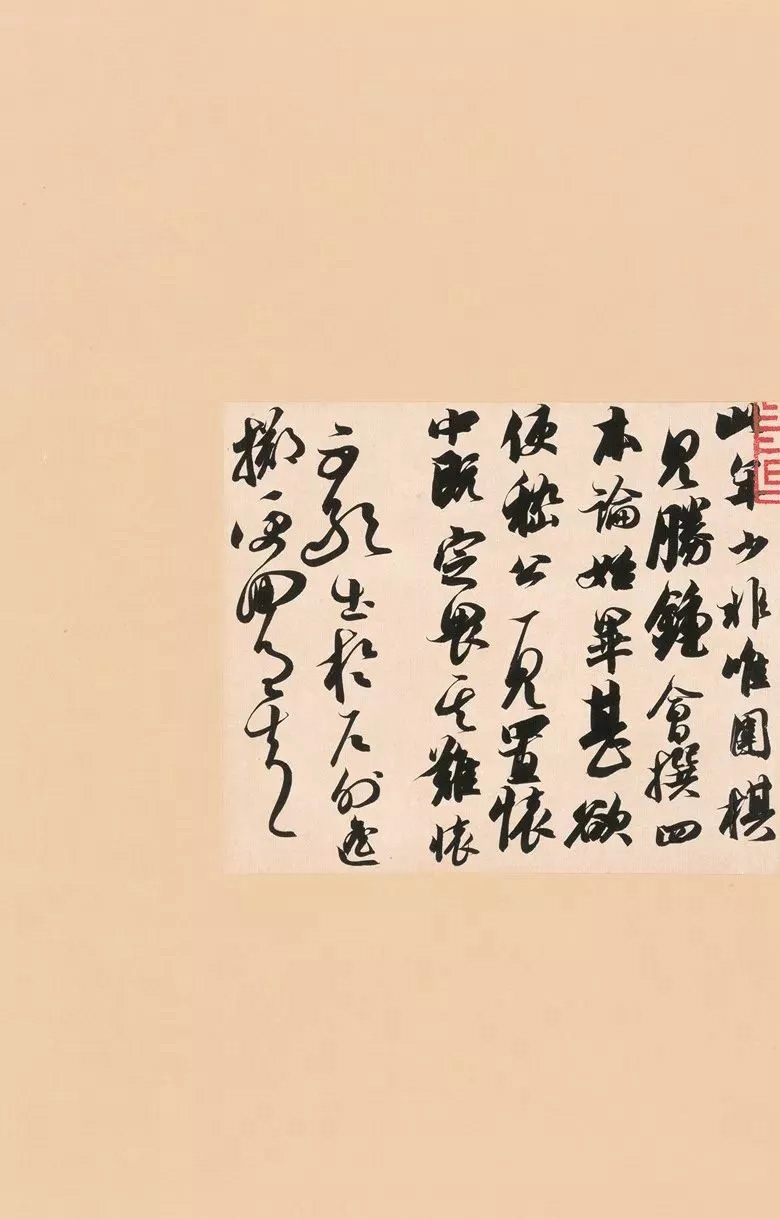 此年少非唯圍棋
見勝鍾會撰四
本論始畢甚欲
使嵇公一見置懷
中既定畏其難懷
不敢出於戶外遙
擲便回急走